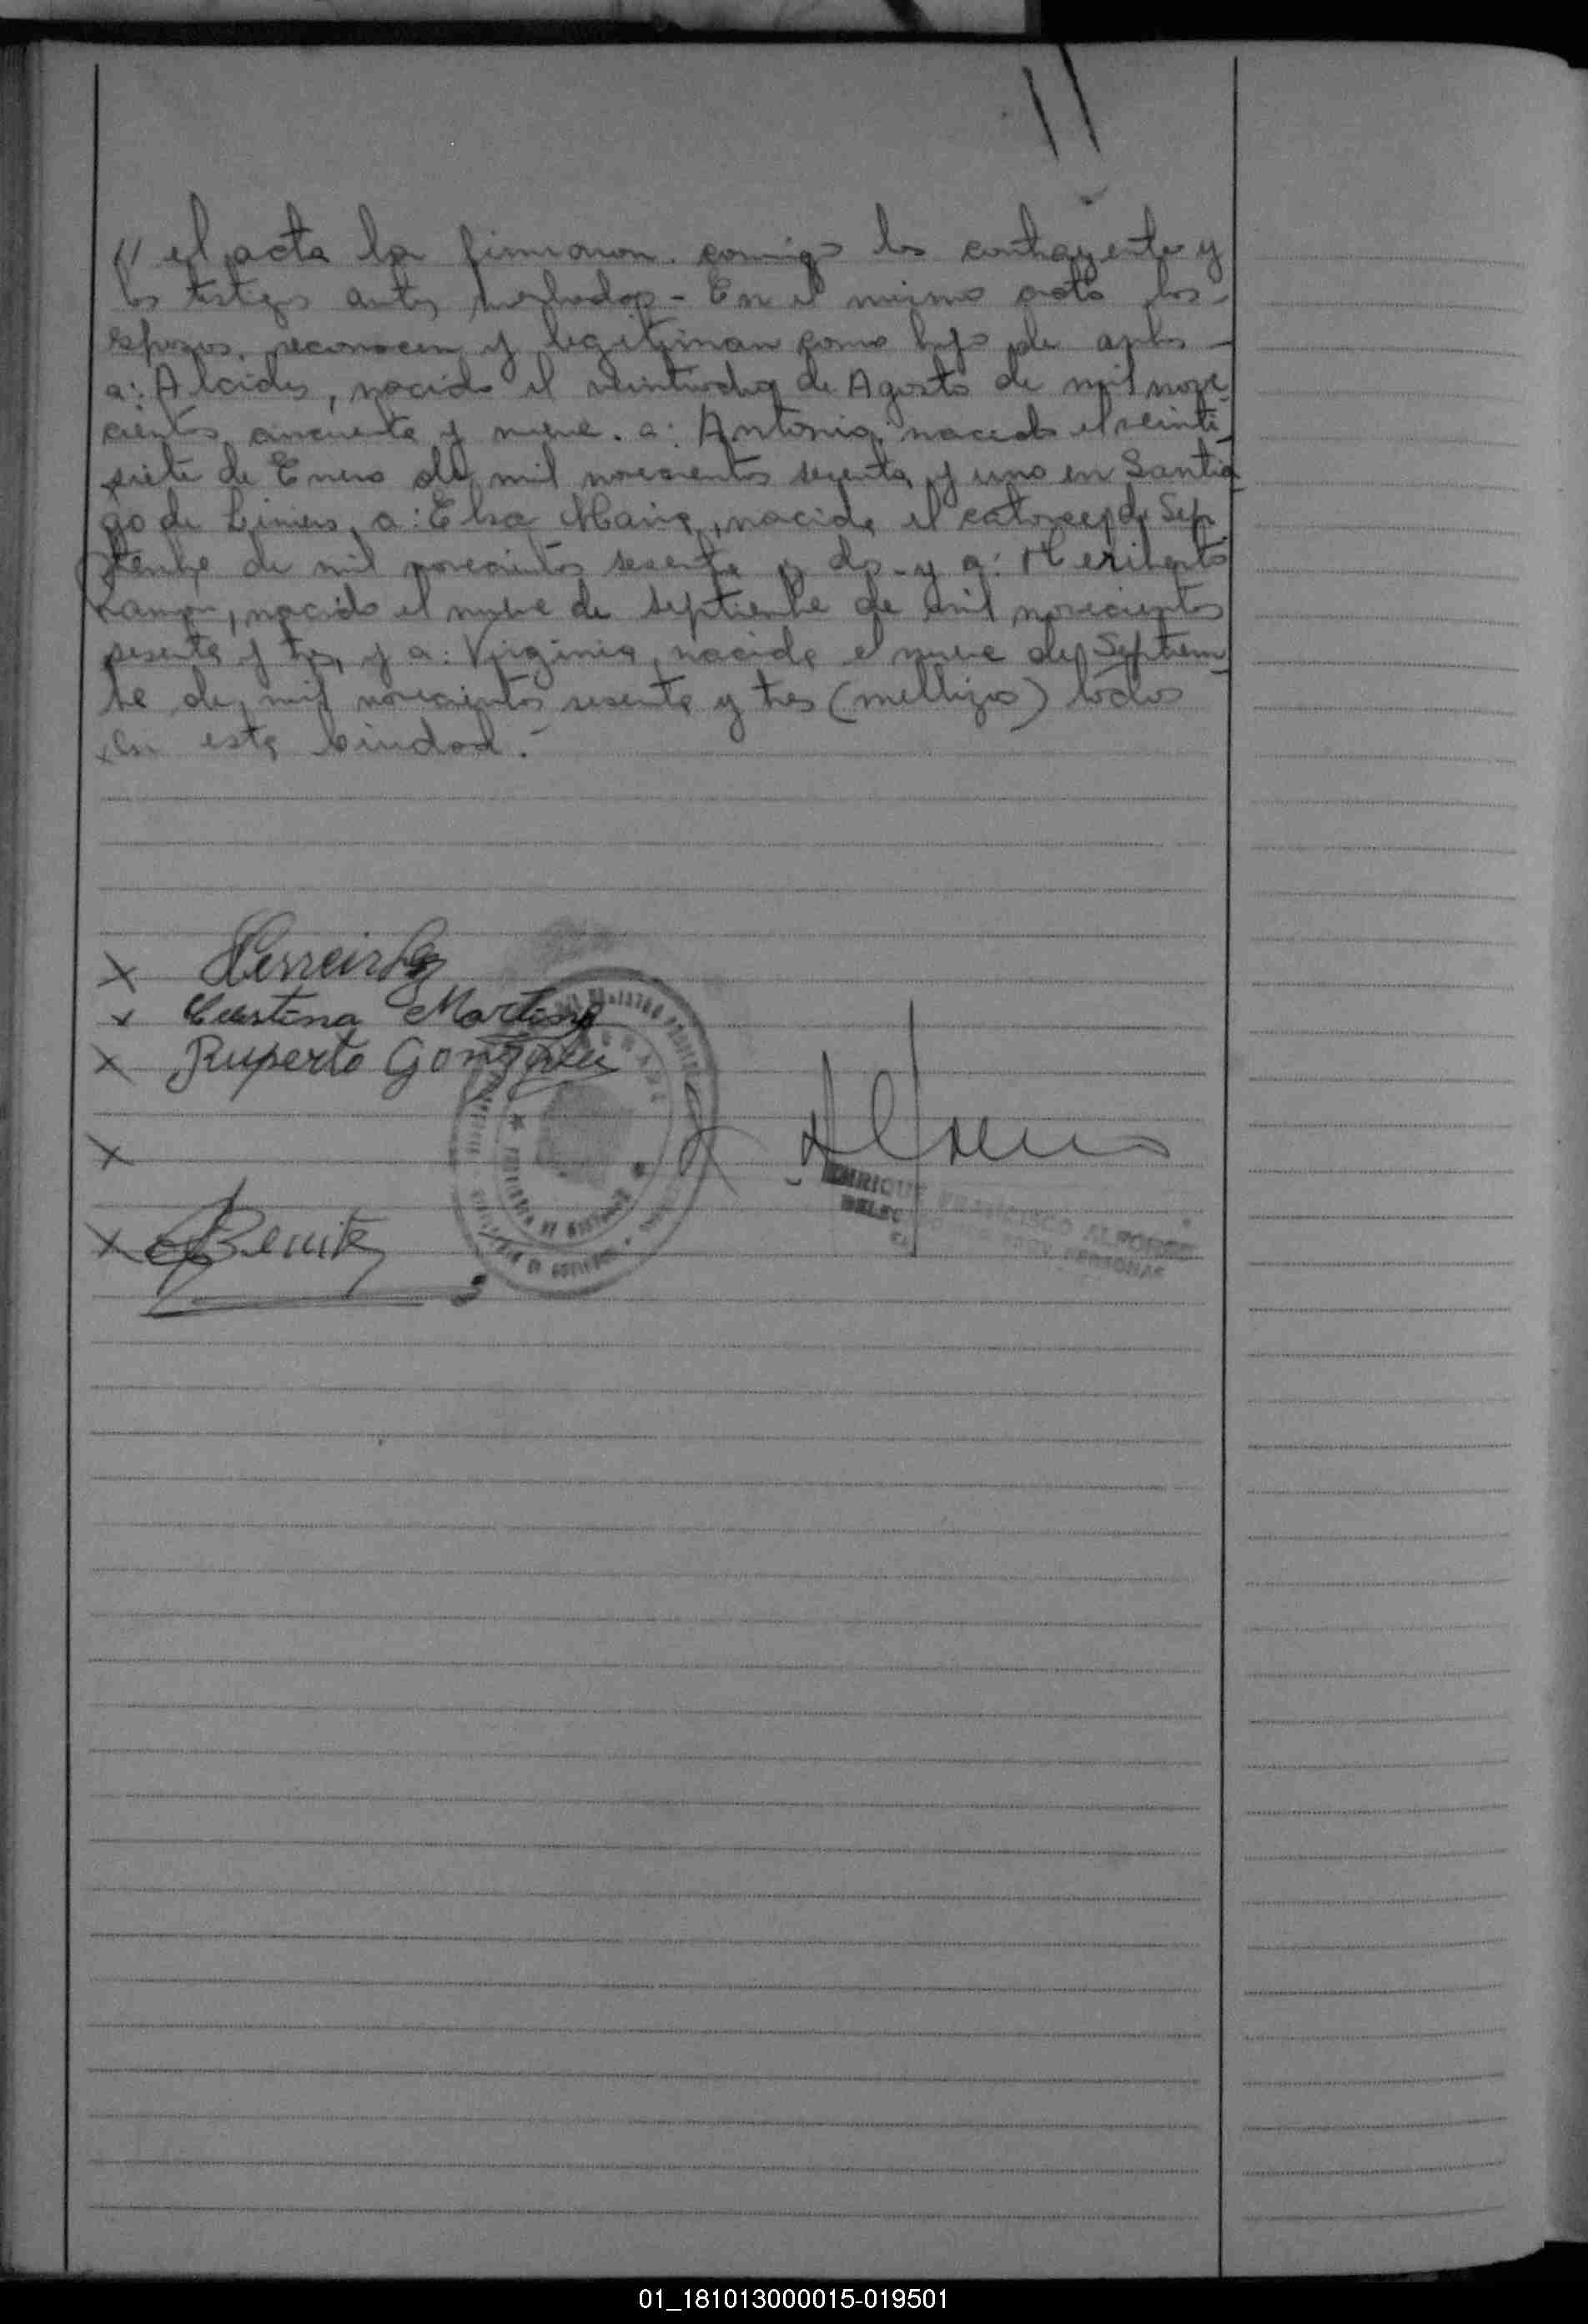 //
// el acta la firmaron conmigo los contrayentes y
los testigos antes nombrados - En el mismo acto los
esposos, reconocen y legitiman como hijos de ambos -
a: Alcides, nacido el veintiocho de Agosto de mil nove
cientos cincuenta y nueve. a: Antonia, nacida el veinti-
siete de Enero de mil novecientos sesenta y uno en Santia
go de Liniers, a: Elsa Maria, nacida el catorce de Sep
tiembre de mil novecientos sesenta y dos - y a: Heriberto
Ramon, nacido el nueve de Septiembre de mil novecientos
sesenta y tres, y a: Virginia, nacida el nueve de Septiem-
bre de mil novecientos sesenta y tres (mellizos) todos
en esta Ciudad.-
X Ferreira
x Martinez
X Ruperto Gonzalez
X
X Benitez
ENRIQUE FRANCISCO
01_181013000015-019501